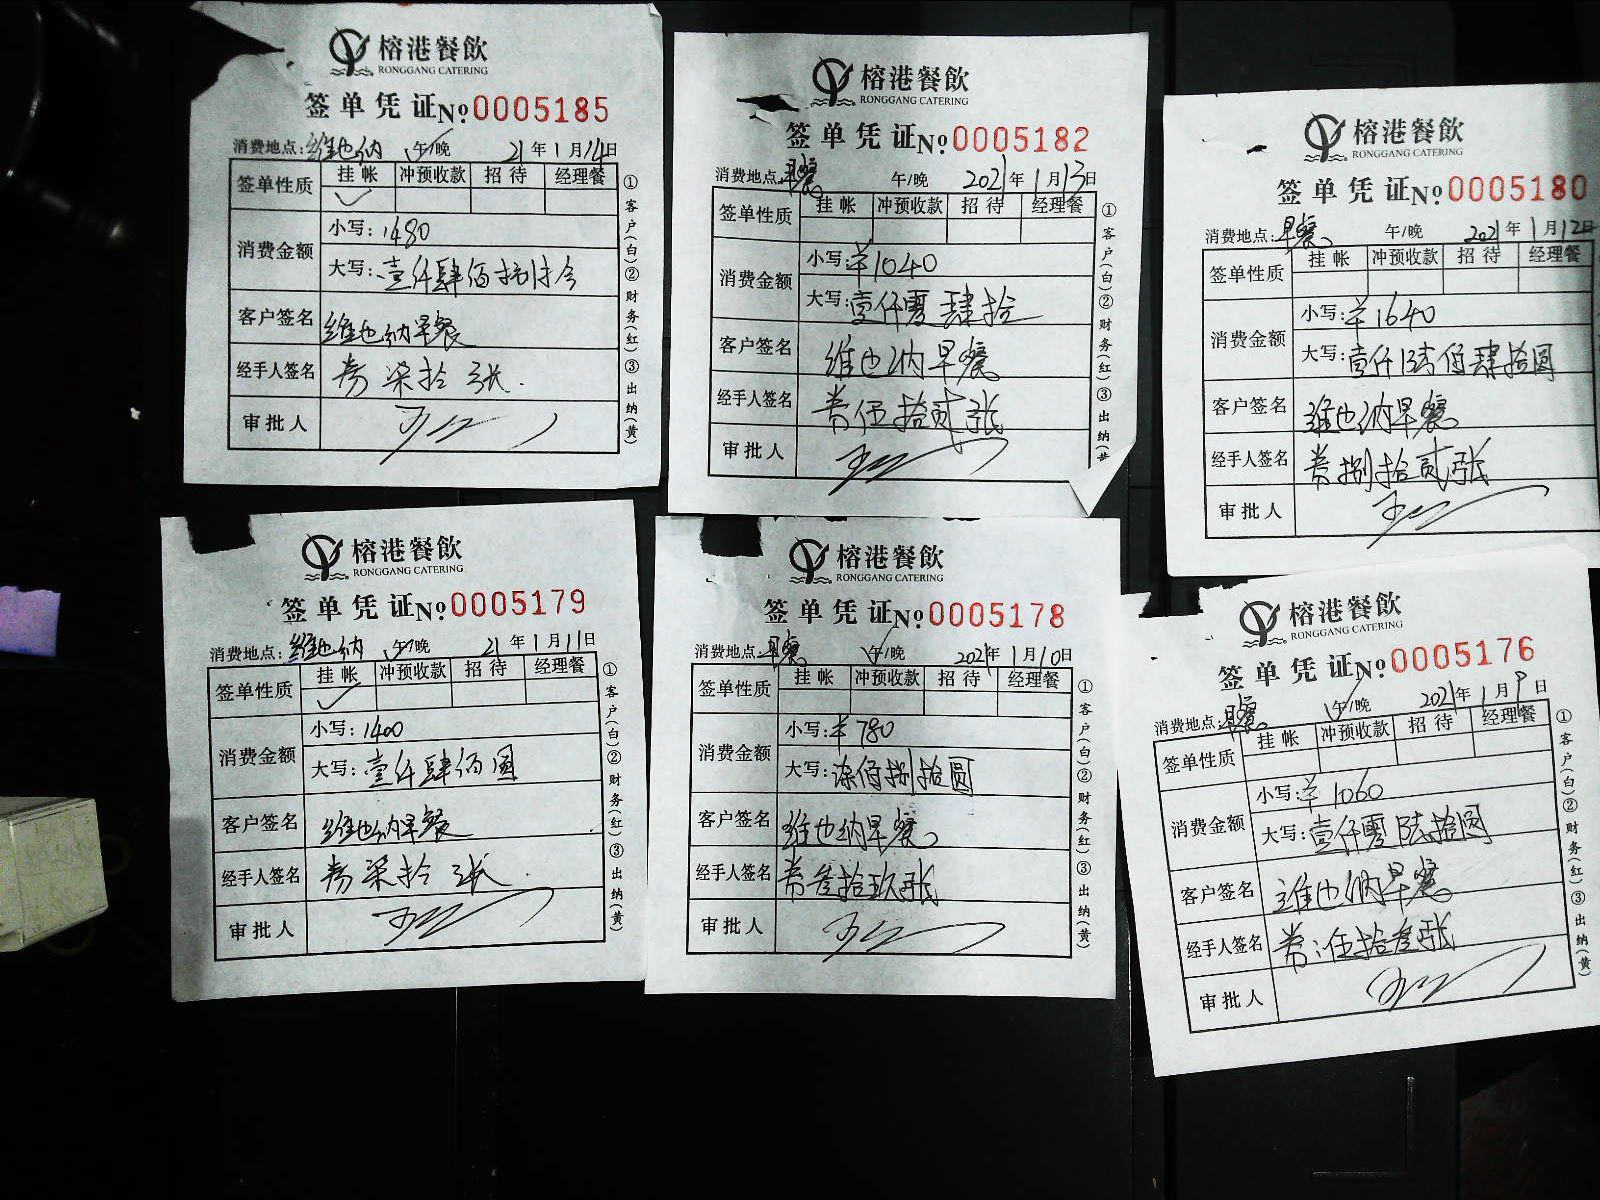 榕港餐飲
RONGGANG CATERING
签单凭证 No.0005185
消费地点:维也纳 午/晚 21年1月14日
签单性质 挂帐 冲预收款 招待 经理餐
消费金额
小写:1480
大写:壹仟肆佰捌拾
客户签名 维也纳早餐
经手人签名 券柒拾 张
审批人
①客户(白)②财务(红)③出纳(黄)
榕港餐飲
RONGGANG CATERING
签单凭证 No.0005182
消费地点:早餐 午/晚 2021年1月13日
签单性质 挂帐 冲预收款 招待 经理餐
消费金额
小写:¥1040
大写:壹仟零肆拾
客户签名 维也纳早餐
经手人签名 券伍拾贰张
审批人
①客户(白)②财务(红)③出纳(黄
榕港餐飲
RONGGANG CATERING
签单凭证 No.0005180
消费地点:早餐 午/晚 2021年1月12日
签单性质 挂帐 冲预收款 招待 经理餐
消费金额
小写:¥1640
大写:壹仟陆佰肆拾圆
客户签名 维也纳早餐
经手人签名 券捌拾贰张
审批人
榕港餐飲
RONGGANG CATERING
签单凭证 No.0005179
消费地点:维也纳 午/晚 21年1月11日
签单性质 挂帐 冲预收款 招待 经理餐
消费金额
小写:1400
大写:壹仟肆佰圆
客户签名 维也纳早餐
经手人签名 券柒拾 张
审批人
①客户(白)②财务(红)③出纳(黄)
榕港餐飲
RONGGANG CATERING
签单凭证 No.0005178
消费地点:早餐 午/晚 2021年1月10日
签单性质 挂帐 冲预收款 招待 经理餐
消费金额
小写:¥780
大写:柒佰捌拾圆
客户签名 维也纳早餐
经手人签名 券叁拾玖张
审批人
①客户(白)②财务(红)③出纳(黄)
榕港餐飲
RONGGANG CATERING
签单凭证 No.0005176
消费地点:早餐 午/晚 2021年1月9日
签单性质 挂帐 冲预收款 招待 经理餐
消费金额
小写:¥1060
大写:壹仟零陆拾圆
客户签名 维也纳早餐
经手人签名 券:伍拾叁张
审批人
①客户(白)②财务(红)③出纳(黄)